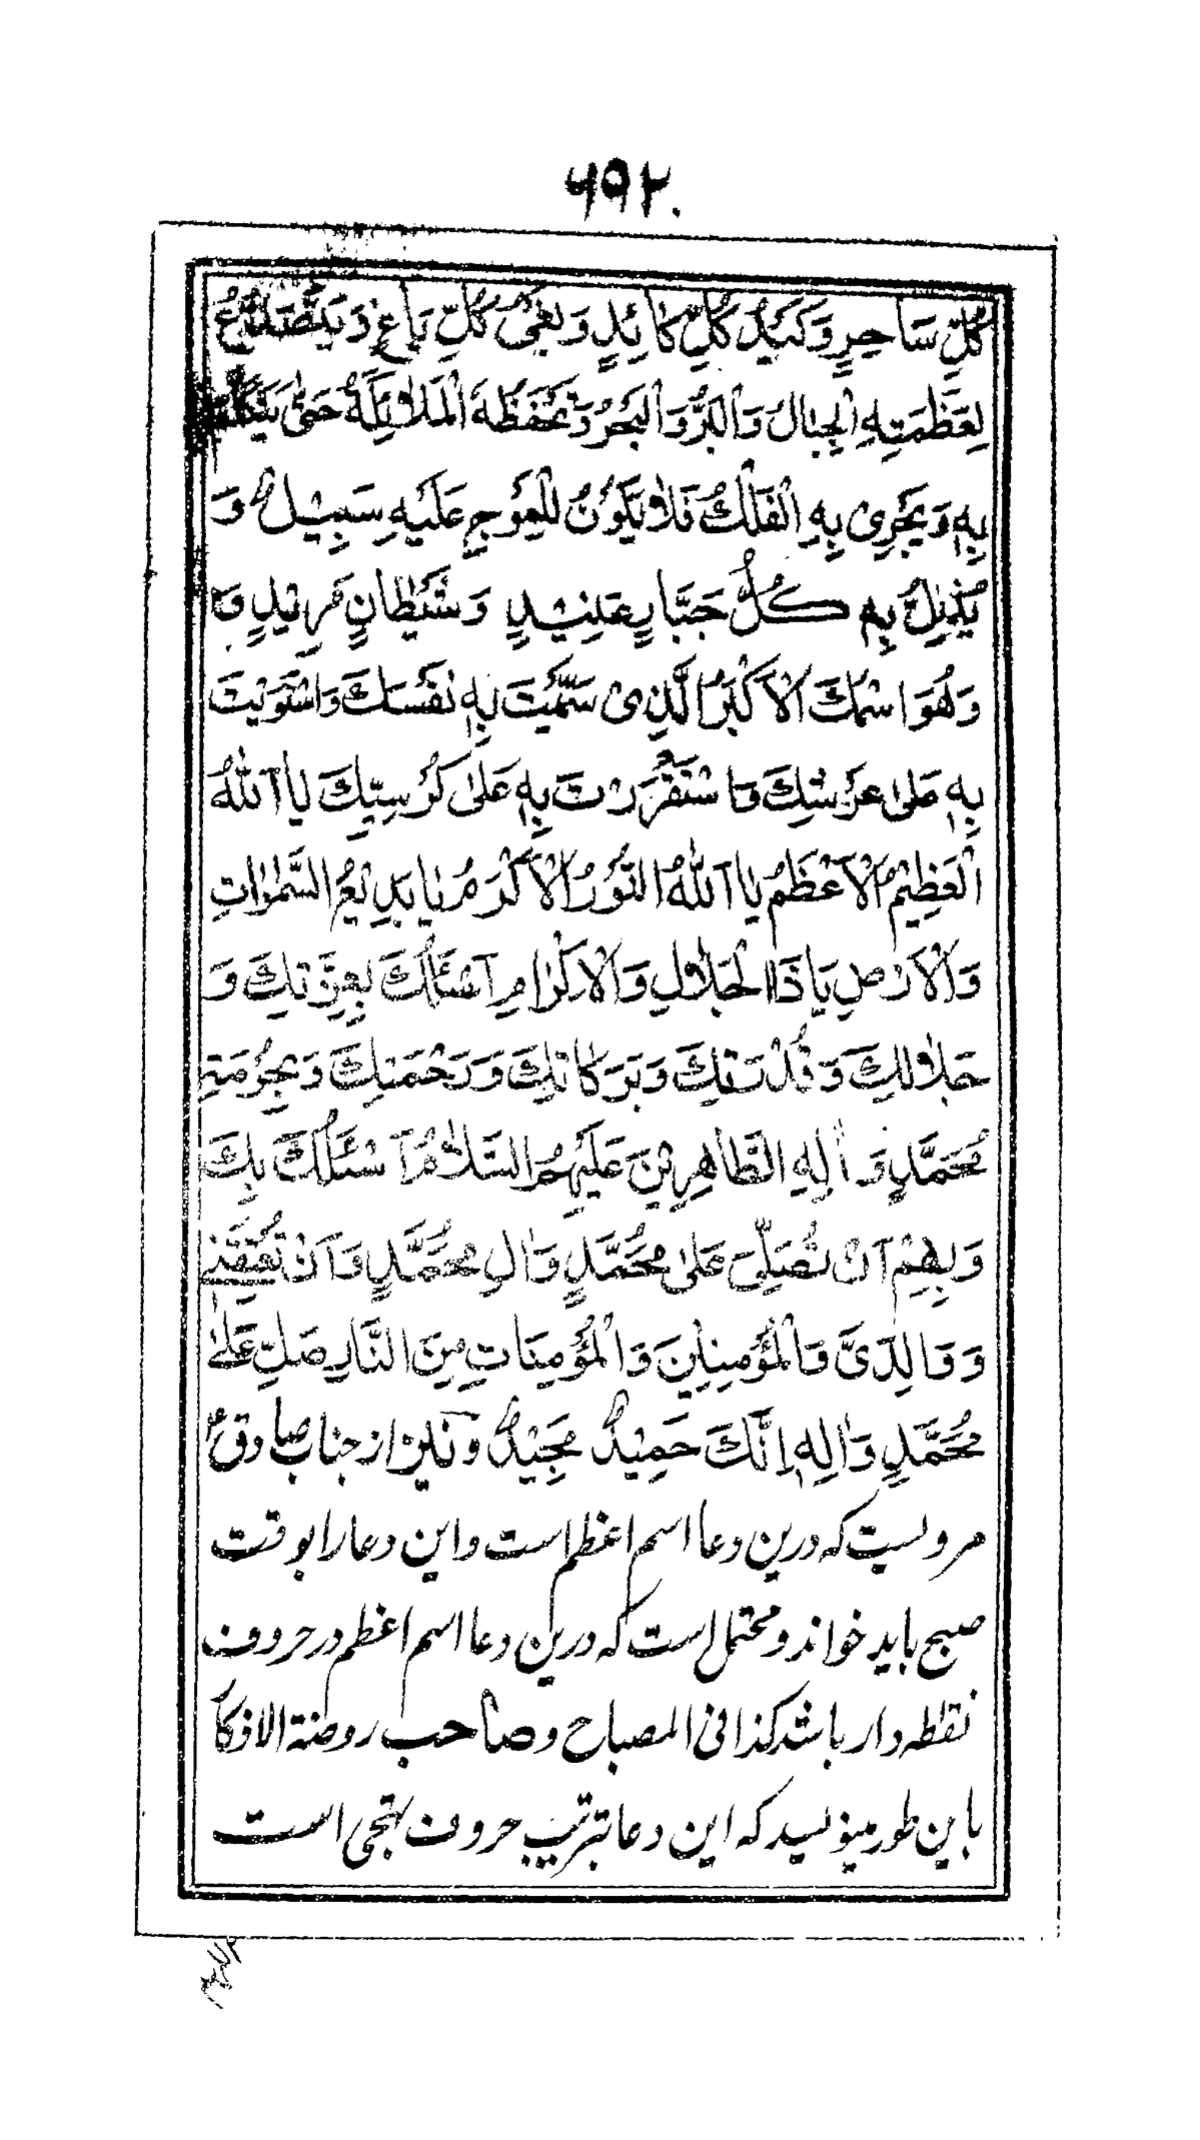 ۶۹۲
كُلِّ سَاحِرٍ وَكَيْدُ كُلِّ كَائِدٍ وَبَغْيُ كُلِّ بَاغٍ وَيَتَصَدَّعُ
لِعَظَمَتِهِ الْجِبَالُ وَالْبَرُّ وَالْبَحْرُ وَتَحْفَظُهُ الْمَلَائِكَةُ حَتّٰى يَتَكَلَّمَ
بِهٖ وَيَجْرِي بِهِ الْفُلْكُ فَلَا يَكُوْنُ لِلْمَوْجِ عَلَيْهِ سَبِيْلٌ وَ
يُذِلُّ بِهٖ كُلُّ جَبَّارٍ عَنِيْدٍ وَشَيْطَانٍ مَرِيْدٍ
وَهُوَ اسْمُكَ الْاَكْبَرُ الَّذِىْ سَمَّيْتَ بِهٖ نَفْسَكَ وَاسْتَوَيْتَ
بِهٖ عَلٰى عَرْشِكَ وَاسْتَقْرَرْتَ بِهٖ عَلٰى كُرْسِيِّكَ يَا اَللّٰهُ
الْعَظِيْمُ الْاَعْظَمُ يَا اَللّٰهُ النُّوْرُ الْاَكْرَمُ يَا بَدِيْعَ السَّمٰوَاتِ
وَالْاَرْضِ يَا ذَا الْجَلَالِ وَالْاِكْرَامِ اَسْئَلُكَ بِعِزَّتِكَ وَ
جَلَالِكَ وَقُدْرَتِكَ وَبَرَكَاتِكَ وَرَحْمَتِكَ وَبِحُرْمَتِ
مُحَمَّدٍ وَاٰلِهِ الطَّاهِرِيْنَ عَلَيْهِمُ السَّلَامُ اَسْئَلُكَ بِكَ
وَبِهِمْ اَنْ تُصَلِّىَ عَلٰى مُحَمَّدٍ وَاٰلِ مُحَمَّدٍ وَاَنْ تُعْتِقَنِىْ
وَ وَالِدَىَّ وَالْمُؤْمِنِيْنَ وَالْمُؤْمِنَاتِ مِنَ النَّارِ صَلِّ عَلٰى
مُحَمَّدٍ وَاٰلِهٖ اِنَّكَ حَمِيْدٌ مَجِيْدٌ و نیز از جناب صادق ؑ
مرویست که درین دعا اسم اعظم است و این دعا را بوقت
صبح باید خواند و محتمل است که درین دعا اسم اعظم در حروف
نقطه دار باشد کذا فی المصباح و صاحب روضة الاذکار
باین طور مینویسد که این دعا بترتیب حروف تهجی است